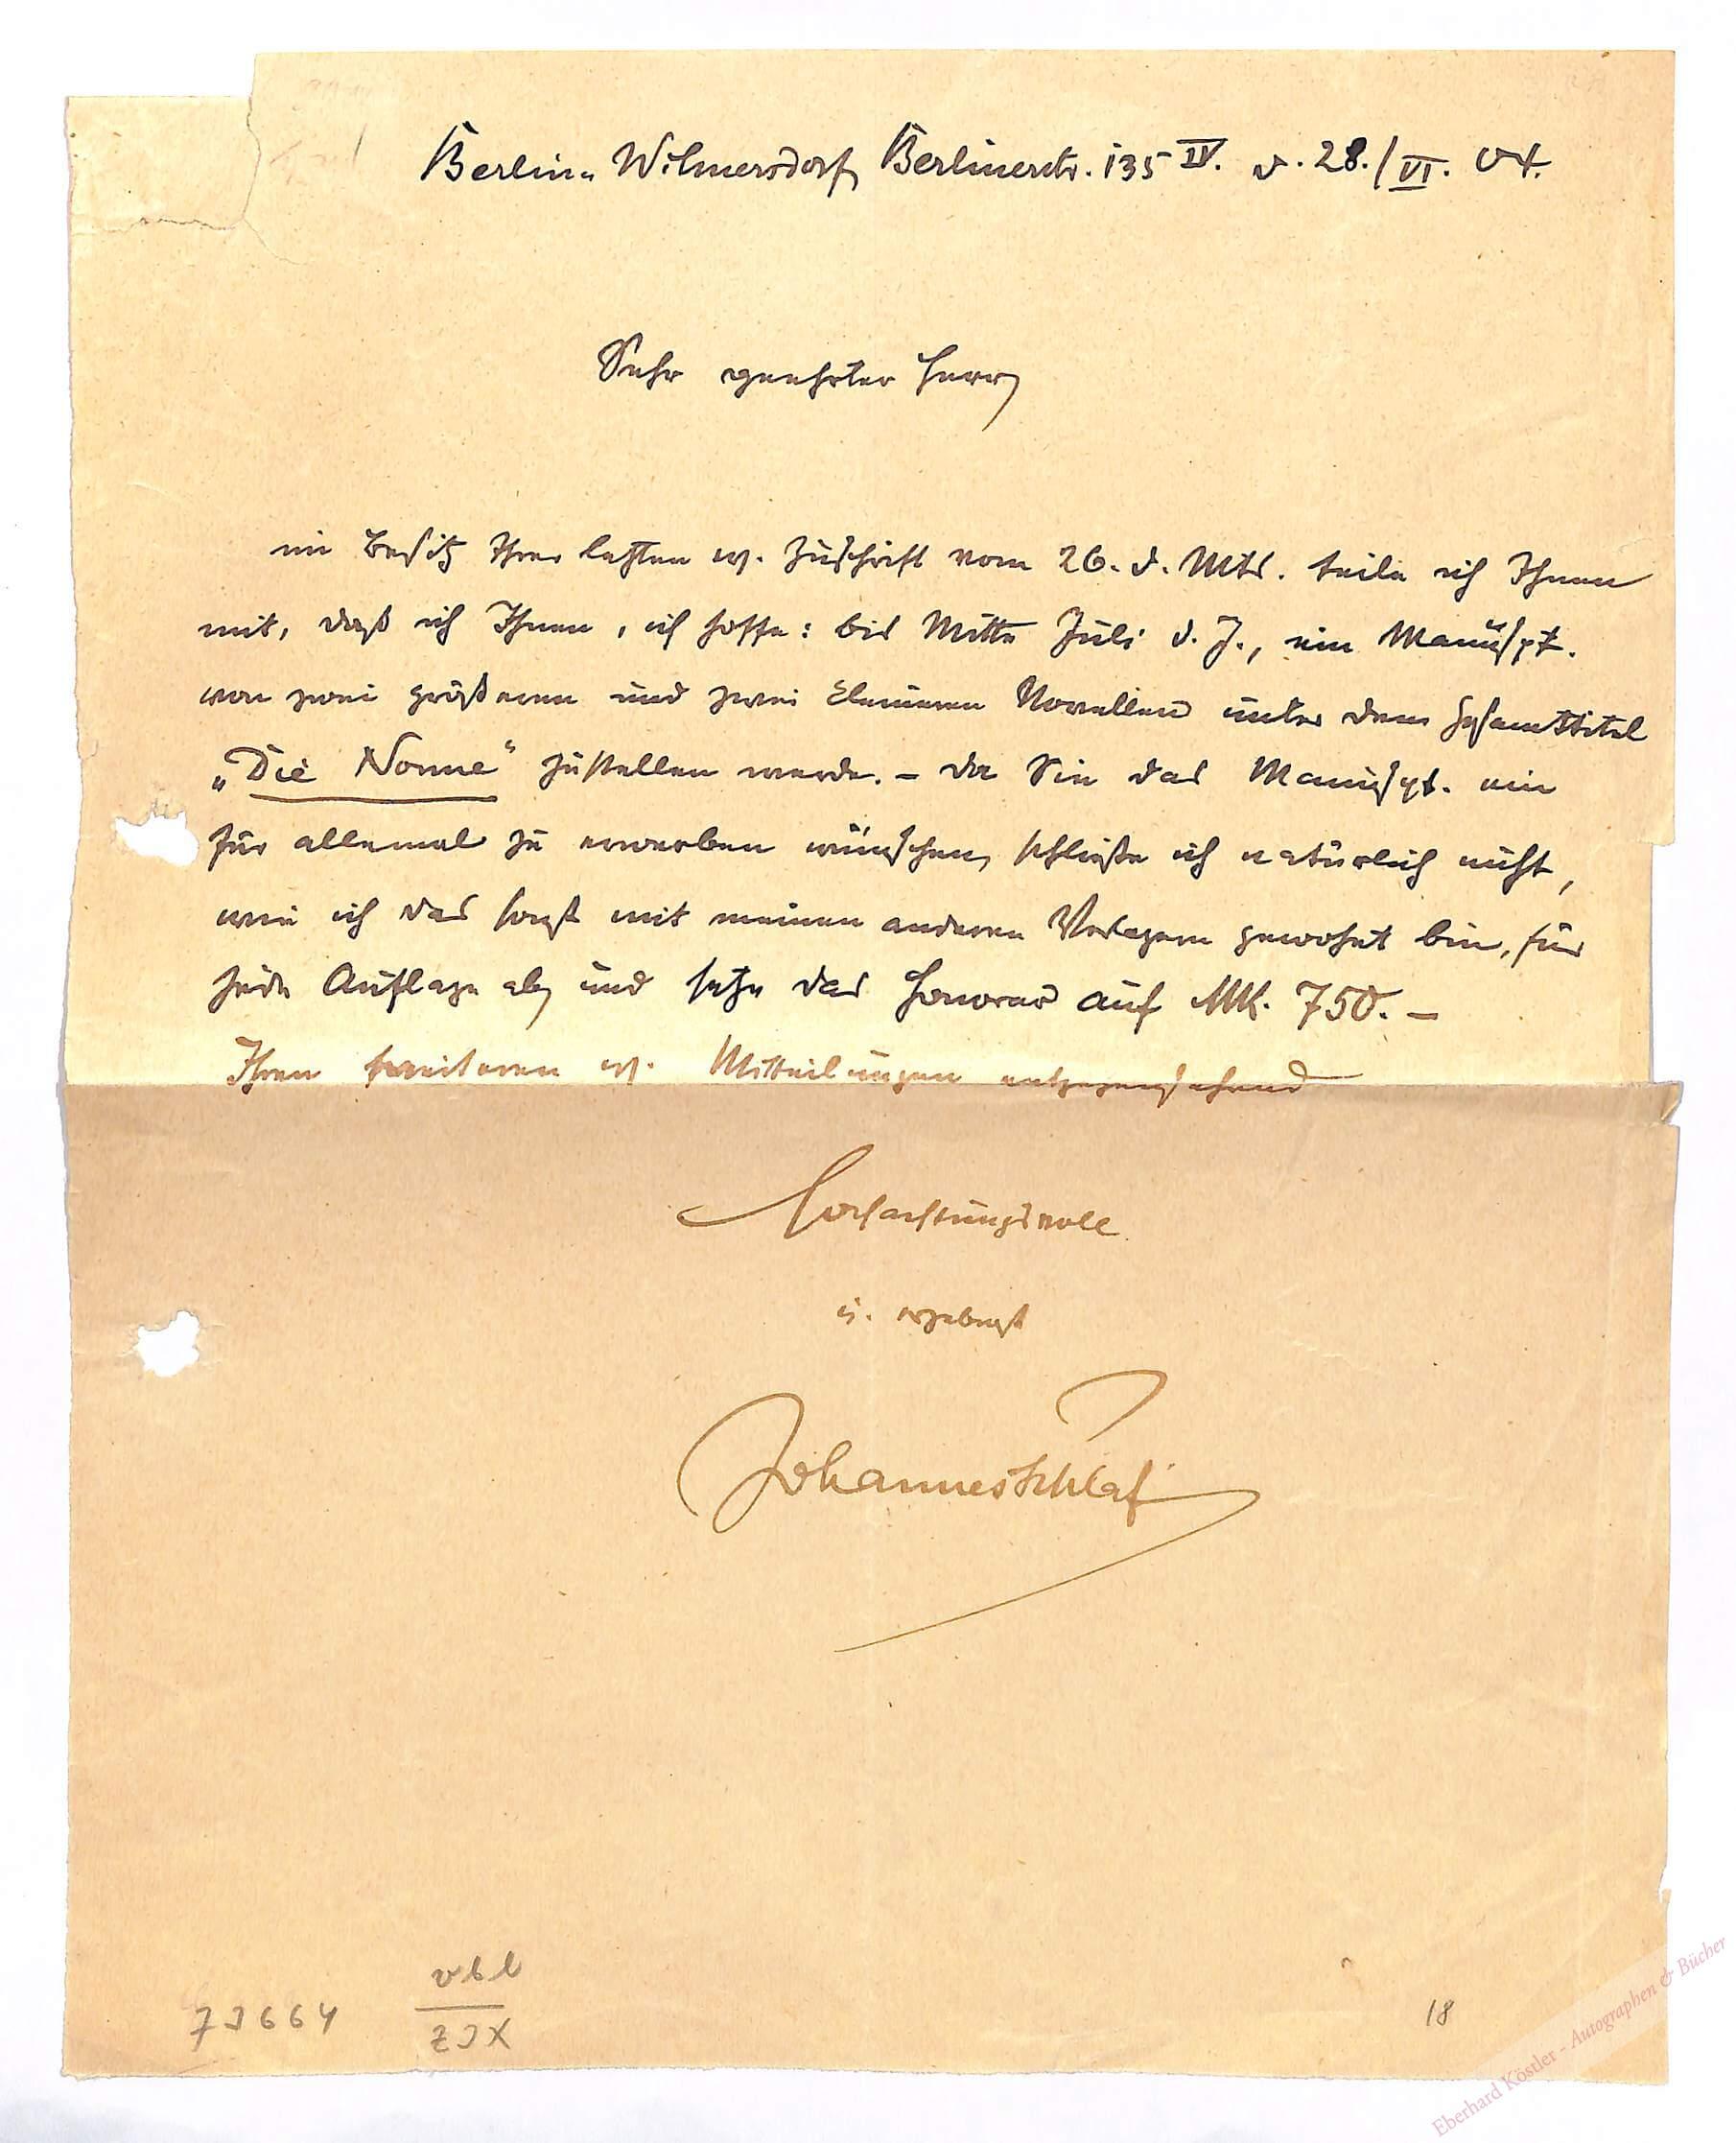 Berlin-Wilmersdorf, Berlinerstr. 135 IV. d. 28./VI. 04.
Sehr geehrter Herr,
im Besitz Ihrer letzten w. Zuschrift vom 26. d. Mts. teile ich Ihnen
mit, daß ich Ihnen, ich hoffe: bis Mitte Juli d. J., ein Manuskpt.
von zwei größeren und zwei kleineren Novellen unter dem Gesamttitel
„Die Nonne“ zustellen werde. – Da Sie das Manuskpt. ein
für allemal zu erwerben wünschen, schließe ich natürlich nicht,
wie ich das sonst mit meinen anderen Verlegern gewohnt bin, für
jede Auflage ab, und setze das Honorar auf Mk. 750. –
Ihren weiteren w. Mitteilungen entgegensehend
Hochachtungsvoll
u. ergebenst
Johannes Schlaf
vbl
73664
ZJX
18
Eberhard Köstler - Autographen & Bücher